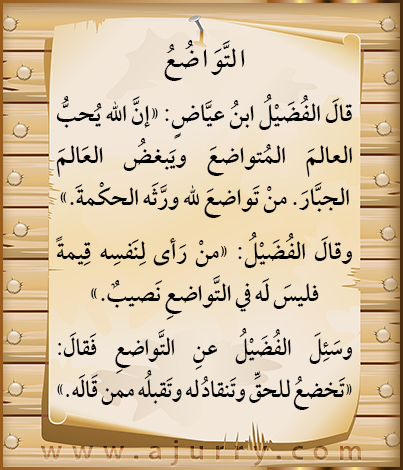 التَّوَاضُعُ
قالَ الفُضَيْلُ ابنُ عيَّاضٍ: «إنَّ الله يُحبُّ
العالمَ المُتواضعَ ويَبغضُ العَالمَ
الجبَّارَ. منْ تَواضعَ لله ورَّثَه الحكْمةَ.»
وقالَ الفُضَيْلُ: «منْ رَأى لِنَفسِه قِيمةً
فليسَ لَه في التَّواضعِ نَصيبٌ.»
وسَئِلَ الفُضَيْلُ عنِ التَّواضعِ فَقالَ:
«تَخضعُ للحقِّ وتَنقادُله وتَقبلُه ممن قَالَه.»
www.ajurry.com